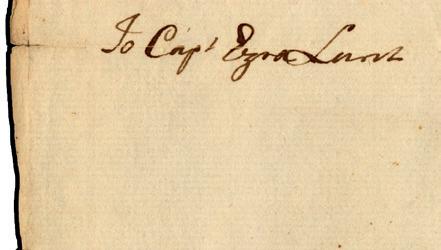 To Capt Ezra Lunt